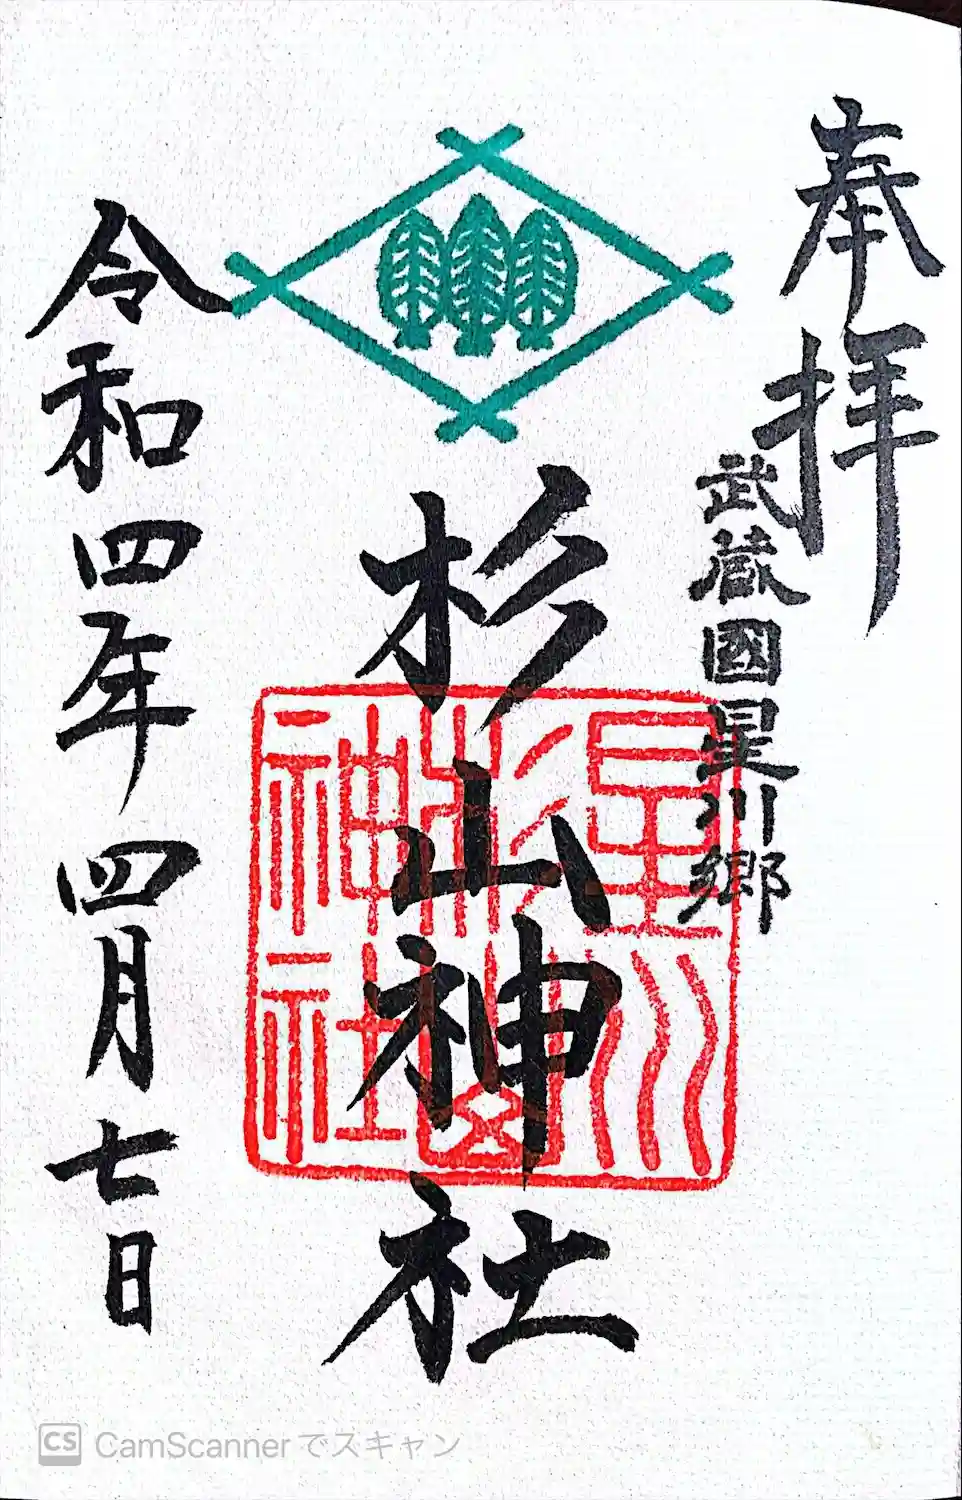 奉拝
武蔵國星川郷
杉山神社
星川
杉山
神社
令和四年四月七日
CS CamScannerでスキャン